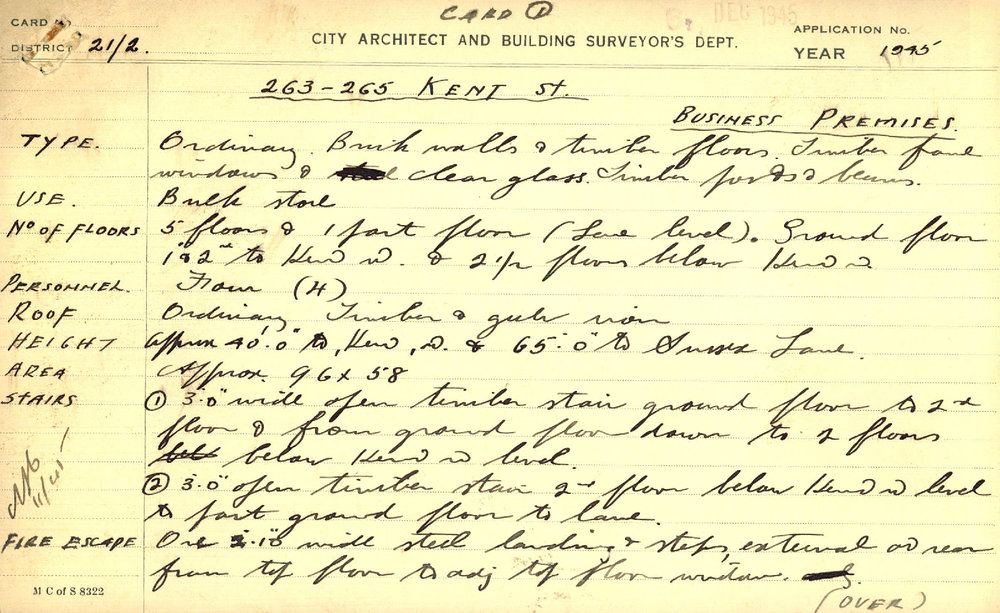 CARD ①
CARD No
DEC 1945
DISTRICT 21/2.
CITY ARCHITECT AND BUILDING SURVEYOR'S DEPT.
APPLICATION No.
YEAR 1945
263-265 KENT St.
BUSINESS PREMISES.
TYPE. Ordinary. Brick walls & timber floors. Timber frame
windows & clear glass. Timber posts & beams.
USE. Bulk store
No OF FLOORS 5 floors & 1 part floor (Lane level). Ground floor
1st & 2nd to Kent St. & 2 1/2 floors below Kent St
PERSONNEL. Four (4)
ROOF Ordinary Timber & galv iron
HEIGHT approx 40'.0" to Kent St. & 65'.0" to Sussex Lane.
AREA Approx. 96 x 58
STAIRS ① 3'.0" wide open timber stair ground floor to 2nd
floor & from ground floor down to 2 floors
below Kent St level.
② 3'.0" open timber stair 2nd floor below Kent St level
to part ground floor to lane.
FIRE ESCAPE One wide steel landing & steps, external at rear
from top floor to adj top floor window.
M C of S 8322
(OVER)